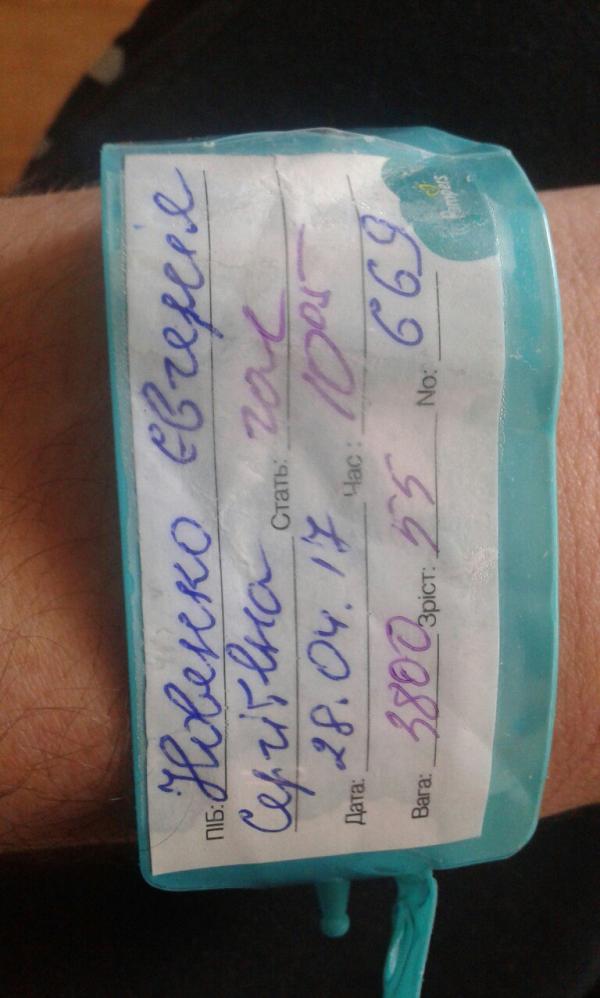 ПІБ: Нівенко Євгенія
Сергіївна Стать: чол
Дата: 28.04.17 Час: 10 05
Вага: 3800 Зріст: 55 No: 669
Pampers